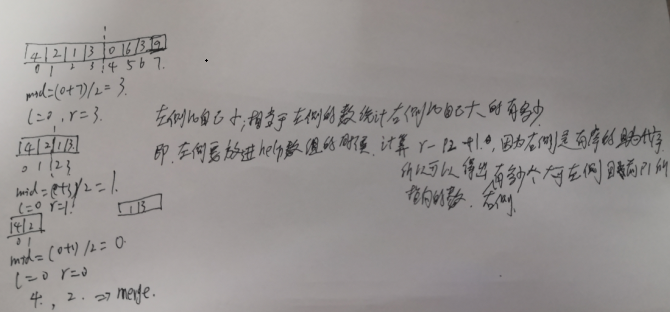 4 2 1 3 0 6 3 9
0 1 2 3 4 5 6 7.
mid=(0+7)/2=3.
l=0, r=3.
4 2 1 3
0 1 2 3
mid=(0+3)/2=1.
l=0 r=1.
1 3
4 2
0 1
mid=(0+1)/2=0
l=0 r=0
4. , 2. => merge.
左侧比自己小;相当于左侧的数统计右侧比自己大的有多少
即,左侧要放进help数组的时候,计算 r-p2+1.
因为右侧是有序的
所以可以得出有多少个大于左侧
指向的数. 右侧.